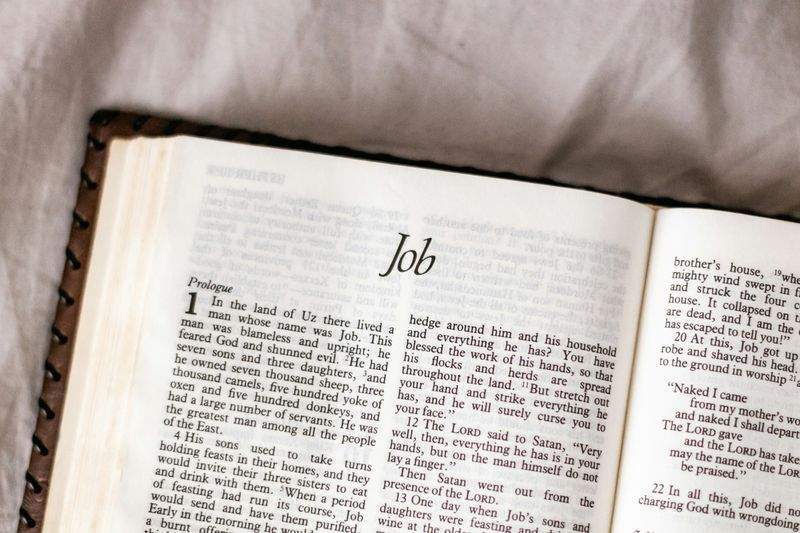 Job
Prologue
1 In the land of Uz there lived a
man whose name was Job. This
man was blameless and upright; he
feared God and shunned evil. 2He had
seven sons and three daughters, 3and
he owned seven thousand sheep, three
thousand camels, five hundred yoke of
oxen and five hundred donkeys, and
had a large number of servants. He was
the greatest man among all the people
of the East.
4 His sons used to take turns
holding feasts in their homes, and they
would invite their three sisters to eat
and drink with them. 5When a period
of feasting had run its course, Job
would send and have them purified.
Early in the morning he would
a burnt offering
hedge around him and his household
and everything he has? You have
blessed the work of his hands, so that
his flocks and herds are spread
throughout the land. 11But stretch out
your hand and strike everything he
has, and he will surely curse you to
your face."
12 The LORD said to Satan, "Very
well, then, everything he has is in your
hands, but on the man himself do not
lay a finger."
Then Satan went out from the
presence of the LORD.
13 One day when Job's sons and
daughters were feasting and
wine at the
brother's house, 19
mighty wind swept in
and struck the four
house. It collapsed on
are dead, and I am the
has escaped to tell you!"
20 At this, Job got up
robe and shaved his head.
to the ground in worship 21
"Naked I came
from my mother's
and naked I shall
The LORD gave
and the LORD has
may the name of the
be praised."
22 In all this, Job did
charging God with wrongdoing